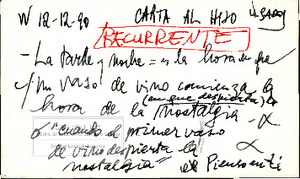 W 12-12-90 CARTA AL HIJO
RECURRENTE
- La tarde y noche = es la hora en que
/ un vaso de vino comienza la
(en que despierta) la
hora de la nostalgia - α
α "cuando el primer vaso α
de vino despierta la
nostalgia" el